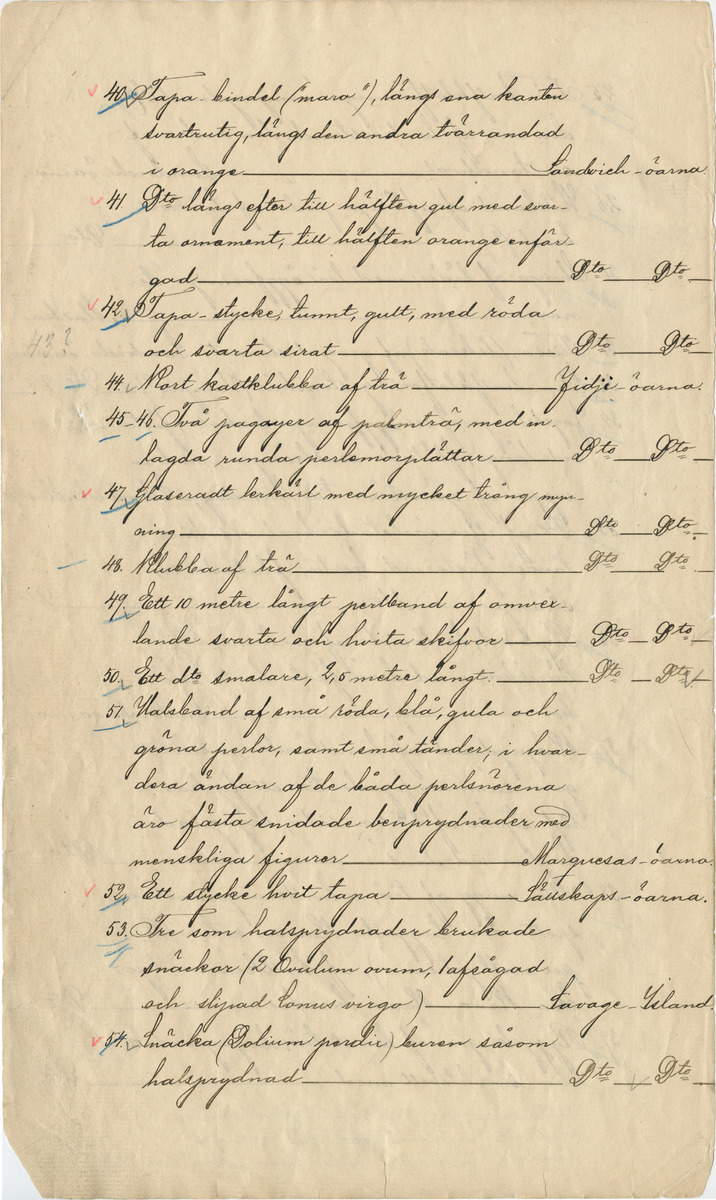 40. Tapa-bindel ("maro"), längs ena kanten
svartrutig, längs den andra tvärrandad
i orange Sandwich-öarna
41. Dto längs efter till hälften gul med svar-
ta ornament, till hälften orange enfär-
gad Dto Dto
42. Tapa-stycke, tunnt, gult, med röda
och svarta sirat Dto Dto
43?
44. Kort kastklubba af trä Fidji-öarna.
45-46. Två pagayer af palmträ, med in-
lagda runda perlemorplättar Dto Dto
47. Glaseradt lerkärl med mycket trång myn-
ning Dto Dto.
48. Klubba af trä Dto Dto
49. Ett 10 metre långt perlband af omvex-
lande svarta och hvita skifvor Dto Dto
50. Ett dto smalare, 2,5 metre långt. Dto Dto
51. Halsband af små röda, blå, gula och
gröna perlor, samt små tänder; i hvar-
dera ändan af de båda perlsnörena
äro fästa snidade benprydnader med
menskliga figurer Marquesas-öarna.
52. Ett stycke hvit tapa Sällskaps-öarna.
53. Tre som halsprydnader brukade
snäckor (2 Ovulum ovum, 1 afsågad
och slipad Conus virgo) Savage-Island.
54. Snäcka (Dolium perdix) buren såsom
halsprydnad Dto Dto